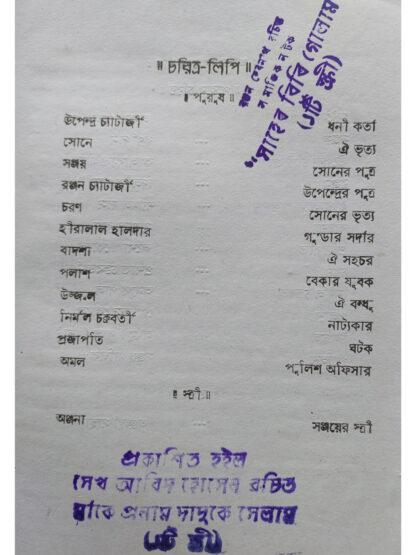 রঞ্জন দেবনাথ রচিত
সামাজিক নাটক
"সাহেব বিবি গোলাম
(৩টি স্ত্রী)
॥ চরিত্র-লিপি ॥
॥ পুরুষ ॥
উপেন্দ্র চ্যাটার্জী ... ধনী কর্তা
সোনে ... ঐ ভৃত্য
সঞ্জয় ... সোনের পুত্র
রঞ্জন চ্যাটার্জী ... উপেন্দ্রের পুত্র
চরণ ... সোনের ভৃত্য
হীরালাল হালদার ... গুন্ডার সর্দার
বাদশা ... ঐ সহচর
পলাশ ... বেকার যুবক
উজ্জ্বল ... ঐ বন্ধু
নির্মল চক্রবর্তী ... নাট্যকার
প্রজাপতি ... ঘটক
অমল ... পুলিশ অফিসার
॥ স্ত্রী ॥
অঞ্জনা ... সঞ্জয়ের স্ত্রী
প্রকাশিত হইল
সেখ আবিদ হোসেন রচিত
মাকে প্রনাম দাদুকে সেলাম
স্ত্রী)